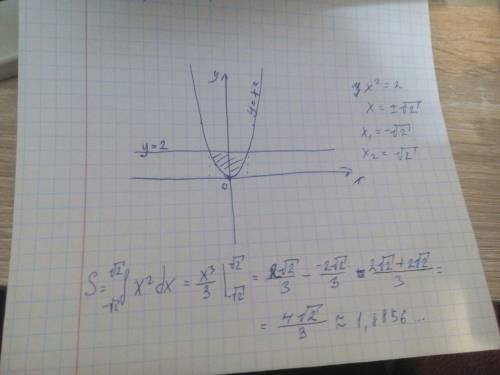 y
y=x²
y=2
0
x
x²=2
x=±√2
x₁=-√2
x₂=√2
S=∫_{-√2}^{√2} x²dx = x³/3 |_{-√2}^{√2} = 2√2/3 - -2√2/3 = 2√2+2√2/3 =
= 4√2/3 ≈ 1,8856...